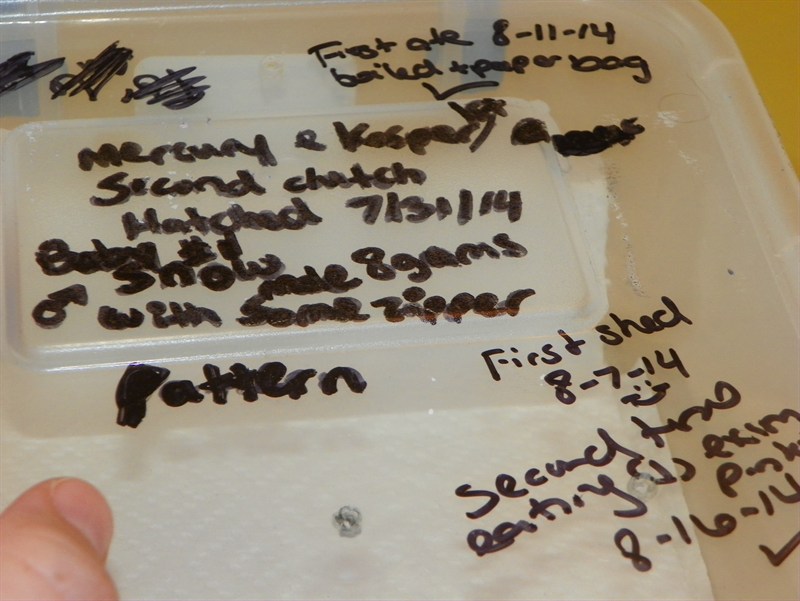 First ate 8-11-14
boiled + paper bag
Mercury & Kasper
Second clutch
Hatched 7/31/14
Baby #1
Snow male 8 grams
♂ with some zipper
Pattern
First shed
8-7-14
Second time
eating
8-16-14